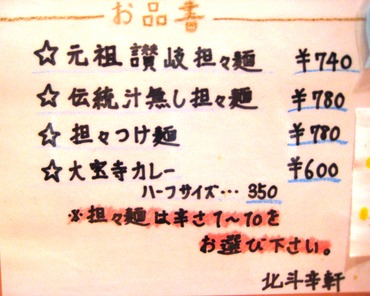 お品書
☆元祖讃岐担々麺 ¥740
☆伝統汁無し担々麺 ¥780
☆担々つけ麺 ¥780
☆大宝寺カレー ¥600
ハーフサイズ…350
※担々麺は辛さ1〜10を
お選び下さい。
北斗辛軒